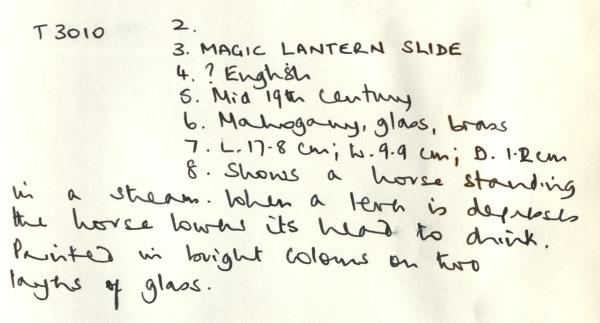 T 3010
2.
3. MAGIC LANTERN SLIDE
4. ? English
5. Mid 19th Century
6. Mahogany, glass, brass
7. L. 17.8 cm; W. 9.9 cm; D. 1.2 cm
8. Shows a horse standing
in a stream. When a lever is depresses
the horse lowers its head to drink.
Painted in bright colours on two
layers of glass.